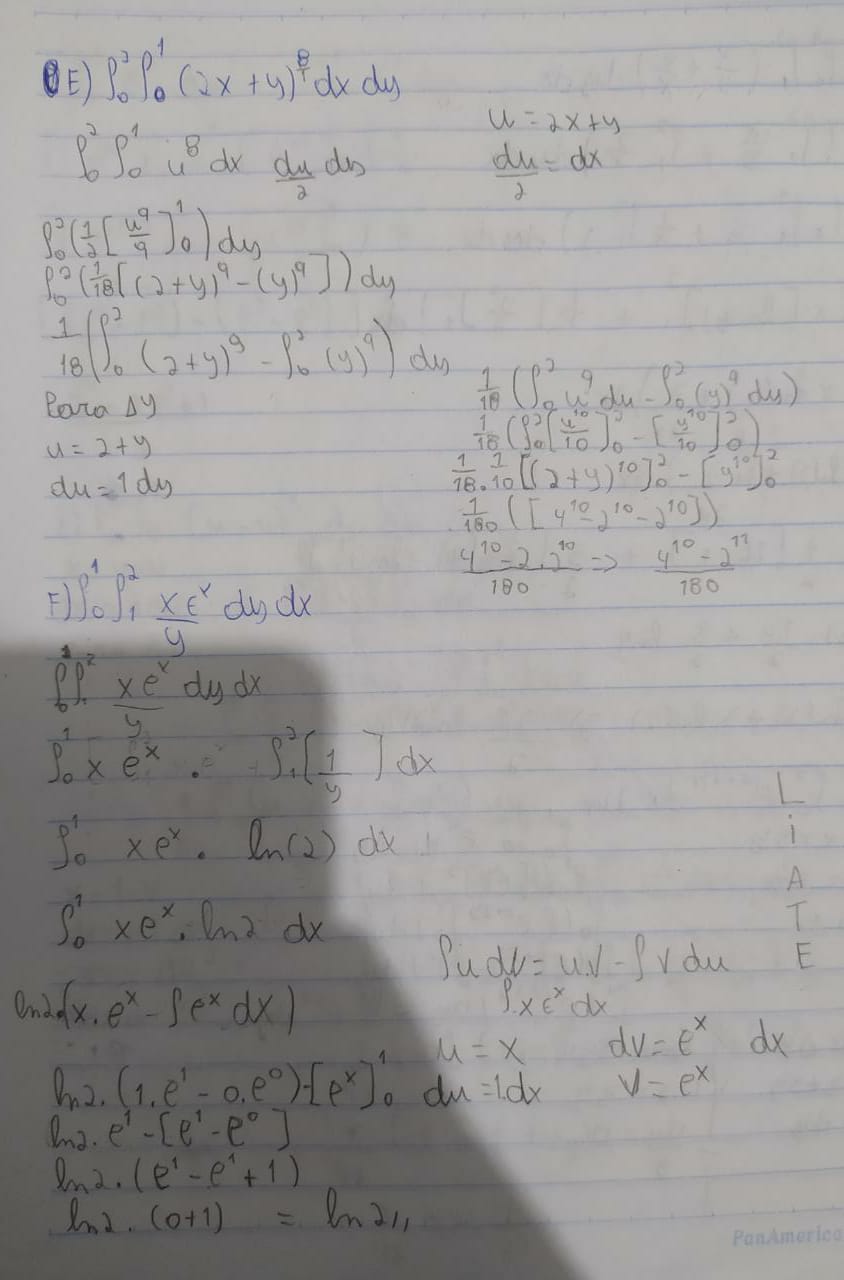 E) ∫₀² ∫₀¹ (2x + y)⁸ dx dy
u = 2x+y
∫₀² ∫₀¹ u⁸ dx du/2 dy
du/2 = dx
∫₀² (1/2 [u⁹/9]₀¹) dy
∫₀² (1/18 [(2+y)⁹ - (y)⁹]) dy
1/18 (∫₀² (2+y)⁹ - ∫₀² (y)⁹) dy
Para Δy
u = 2+y
du = 1 dy
1/18 (∫₀² u⁹ du - ∫₀² (y)⁹ dy)
1/18 (∫₀² [u¹⁰/10]₀² - [y¹⁰/10]₀²)
1/18 . 1/10 [(2+y)¹⁰]₀² - [y¹⁰]₀²
1/180 ([4¹⁰ - 2¹⁰ - 2¹⁰])
4¹⁰ - 2.2¹⁰/180 => 4¹⁰ - 2¹¹/180
F) ∫₀¹ ∫₁² xeˣ/y dy dx
∫₀¹ ∫₁² xeˣ/y dy dx
∫₀¹ x eˣ . ∫₁² [1/y] dx
∫₀¹ xeˣ . ln(2) dx
∫₀¹ xeˣ . ln2 dx
L
i
A
T
E
∫u dv = u.v - ∫v du
∫x eˣ dx
u = x dv = eˣ dx
du = 1.dx v = eˣ
ln2.(x.eˣ - ∫eˣ dx)
ln2.(1.e¹ - 0.e⁰) - [eˣ]₀¹
ln2.e¹ - [e¹ - e⁰]
ln2.(e¹ - e¹ + 1)
ln2.(0+1) = ln2//
PanAmerica